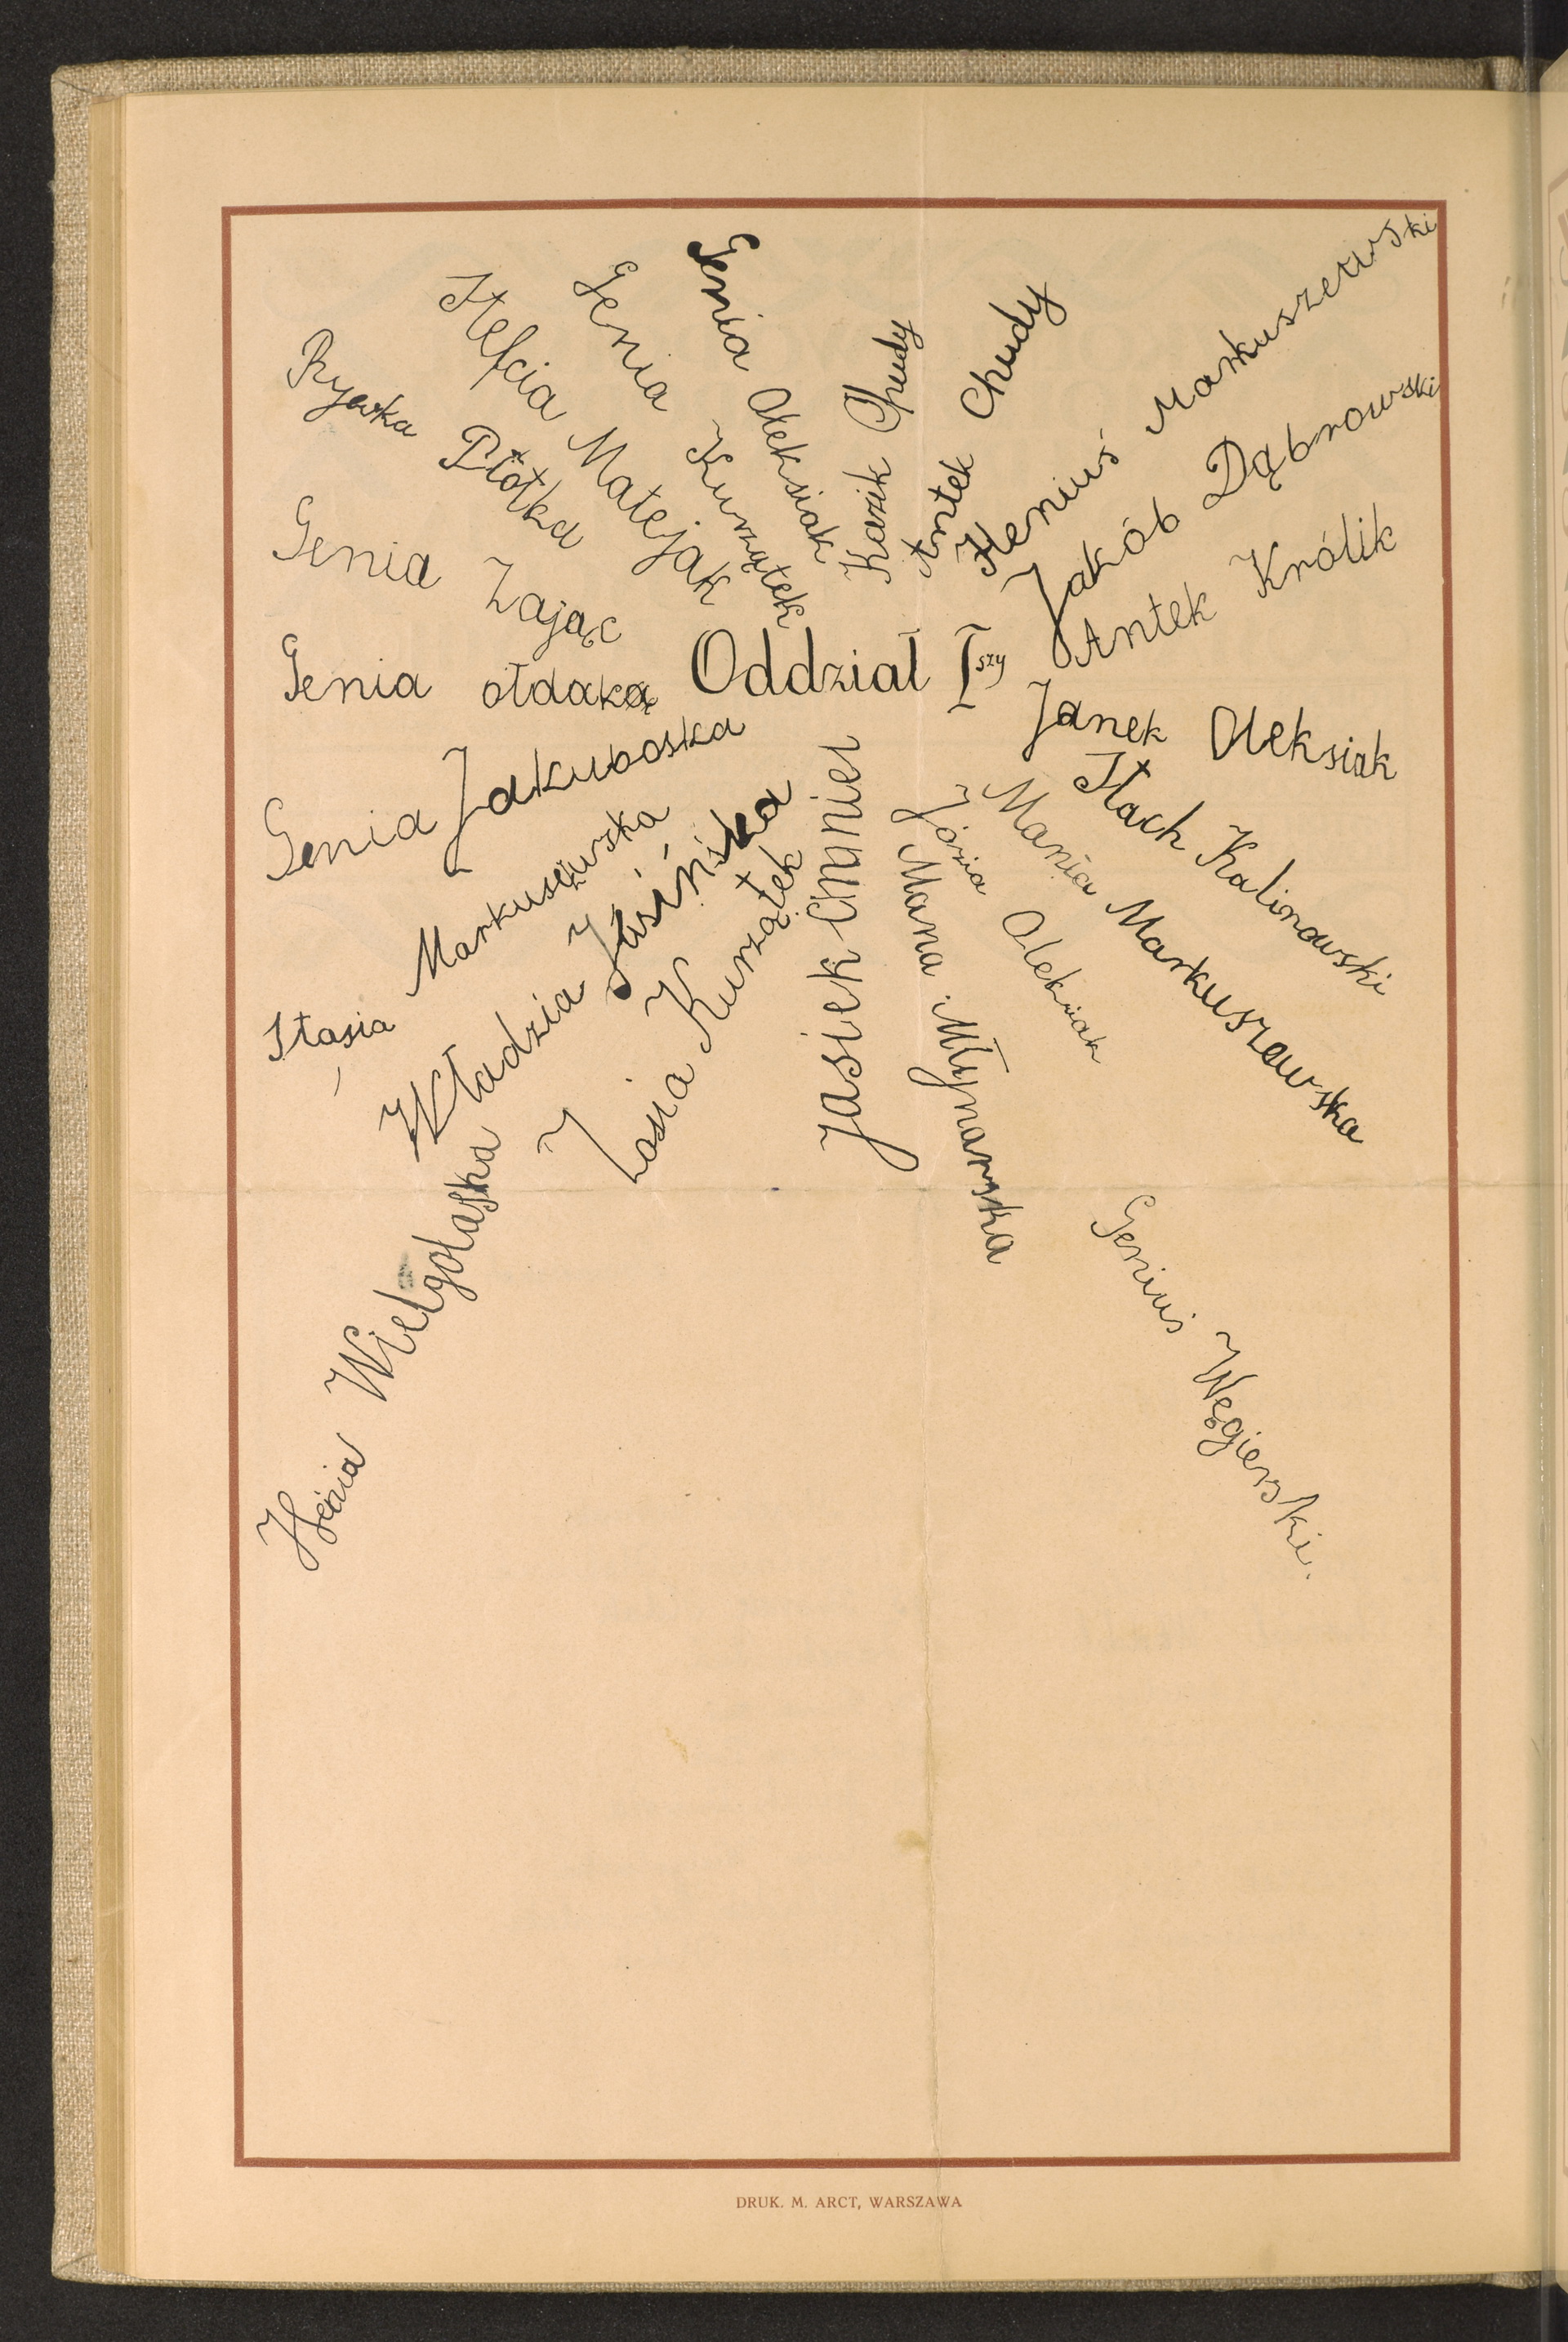 Genia Oleksiak
Genia Kurzątek
Stefcia Matejak
Rywka Płotka
Genia Zając
Genia ołdaką
Genia Jakuboska
Stasia Markuszewska
Władzia Jusińska
Henia Wielgołaska
Zosia Kurzątek
Kazik Chudy
Antek Chudy
Heniuś Markuszewski
Jakób Dąbrowski
Antek Królik
Oddział I szy
Janek Oleksiak
Stach Kalinowski
Mania Markuszewska
Józia Oleksiak
Mana Młynarska
Jasiek Cmniel
Geniuś Węgierski.
DRUK. M. ARCT, WARSZAWA